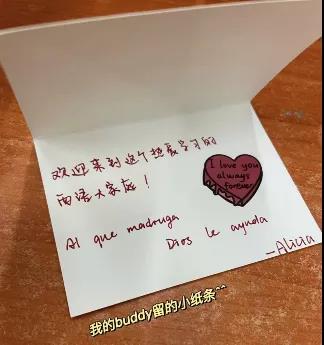 欢迎来到这个热爱学习的
西语大家庭！
I love you
always
forever
Al que madruga
Dios le ayuda
—Alicia
我的buddy留的小纸条^^